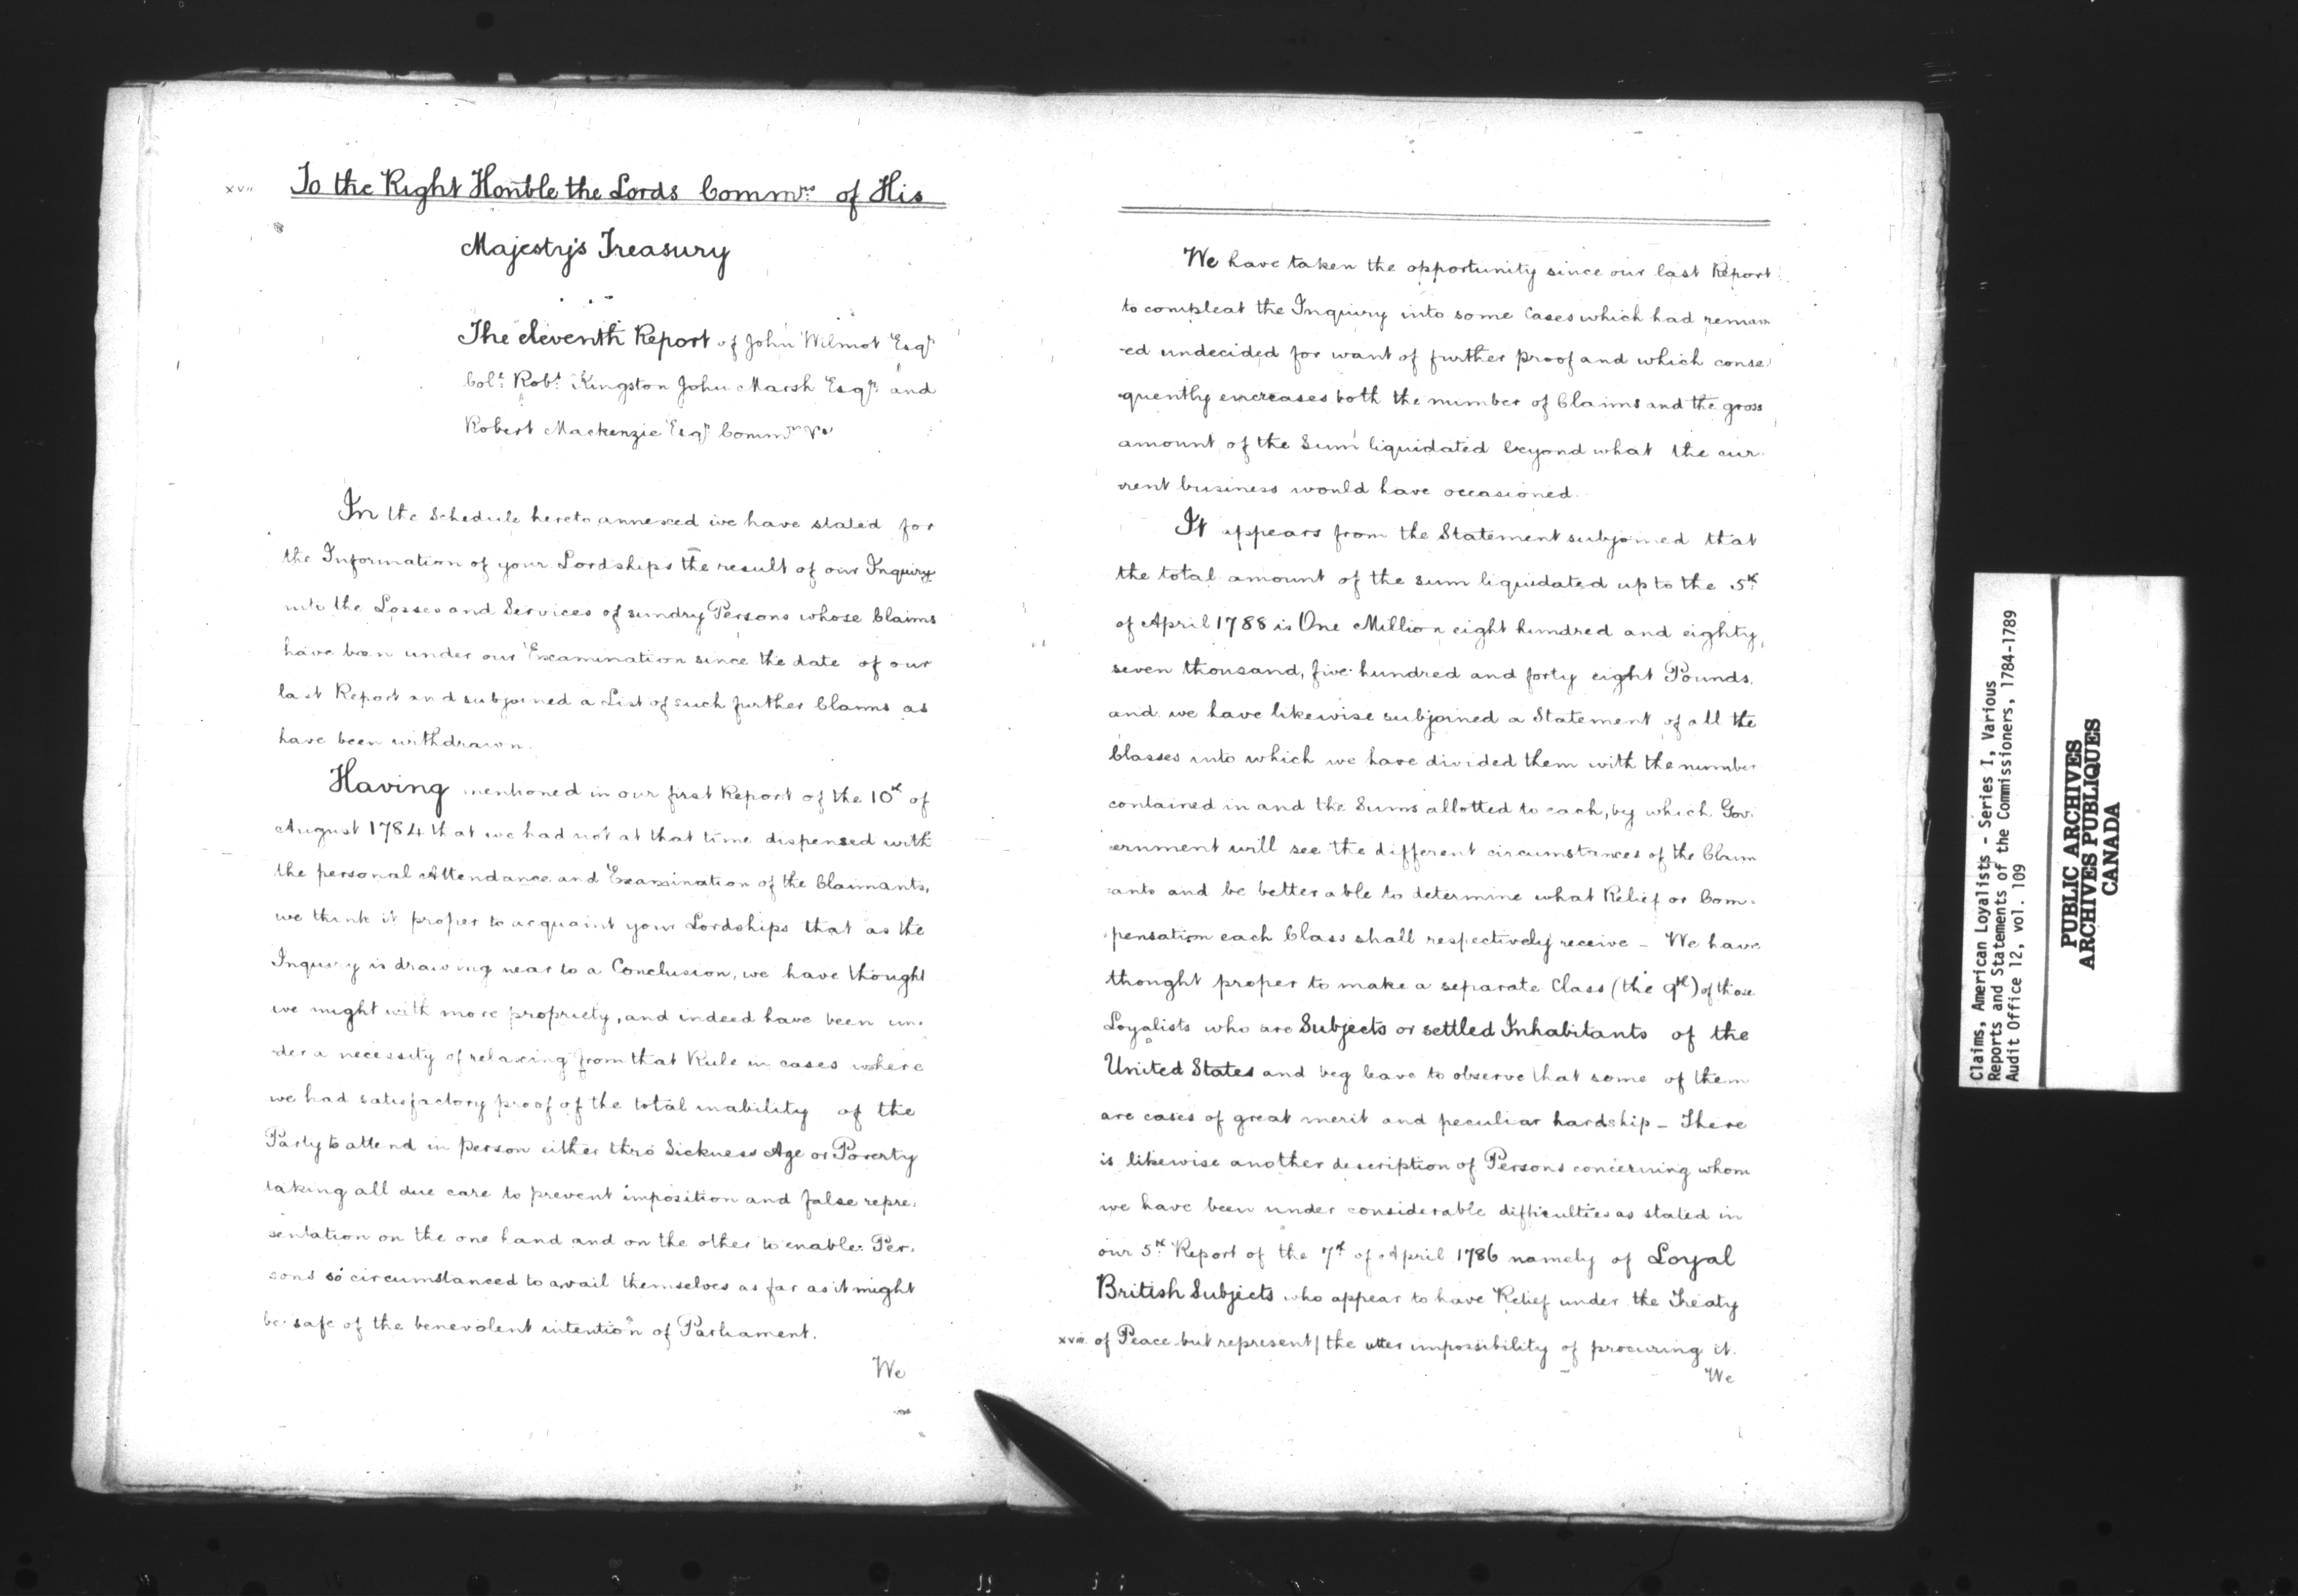 xvii
To the Right Honble the Lords Commrs of His
Majesty's Treasury
The Eleventh Report of John Wilmot Esqr
Coll Robt Kingston John Marsh Esqr and
Robert Mackenzie Esqr Commrs &c
In the Schedule hereto annexed we have stated for
the Information of your Lordships the result of our Inquiry
into the Losses and Services of sundry Persons whose Claims
have been under our Examination since the date of our
last Report and subjoined a List of such further Claims as
have been withdrawn.
Having mentioned in our first Report of the 10th of
August 1784 that we had not at that time dispensed with
the personal Attendance and Examination of the Claimants,
we think it proper to acquaint your Lordships that as the
Inquiry is drawing near to a Conclusion, we have thought
we might with more propriety, and indeed have been un-
-der a necessity of relaxing from that Rule in cases where
we had satisfactory proof of the total inability of the
Party to attend in person either thro' Sickness Age or Poverty
taking all due care to prevent imposition and false repre-
sentation on the one hand and on the other to enable Per-
sons so circumstanced to avail themselves as far as it might
be safe of the benevolent intention of Parliament.
We
We have taken the opportunity since our last Report
to compleat the Inquiry into some Cases which had remain
-ed undecided for want of further proof and which conse-
-quently encreases both the number of Claims and the gross
amount of the Sum liquidated beyond what the cur-
-rent business would have occasioned.
It appears from the Statement subjoined that
the total amount of the sum liquidated up to the 5th
of April 1788 is One Million eight hundred and eighty,
seven thousand, five hundred and forty eight Pounds.
and we have likewise subjoined a Statement of all the
Classes into which we have divided them with the number
contained in and the Sums allotted to each, by which Gov-
-ernment will see the different circumstances of the Claim
-ants and be better able to determine what Relief or Com-
-pensation each Class shall respectively receive – We have
thought proper to make a separate Class (the 9th) of those
Loyalists who are Subjects or settled Inhabitants of the
United States and beg leave to observe that some of them
are cases of great merit and peculiar hardship – There
is likewise another description of Persons concerning whom
we have been under considerable difficulties as stated in
our 5th Report of the 7th of April 1786 namely of Loyal
British Subjects who appear to have Relief under the Treaty
xviii of Peace but represent | the utter impossibility of procuring it.
We
Claims, American Loyalists - Series I, Various
Reports and Statements of the Commissioners, 1784-1789
Audit Office 12, vol. 109
PUBLIC ARCHIVES
ARCHIVES PUBLIQUES
CANADA